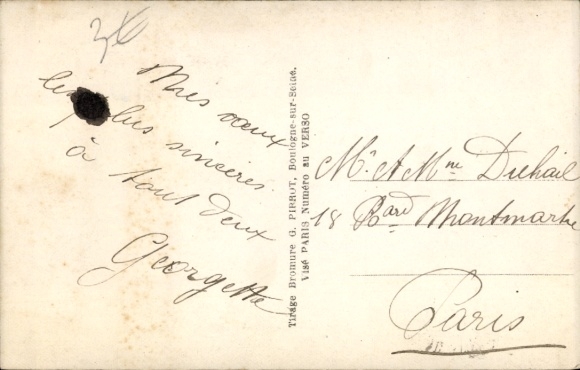 Mes vœux
les plus sincères
à tout deux
Georgette
Tirage Bromure G. PIRROT, Boulogne-sur-Seine.
Visé PARIS Numéro au VERSO
Mr & Mme Duhail
18 Bard Montmartre
Paris